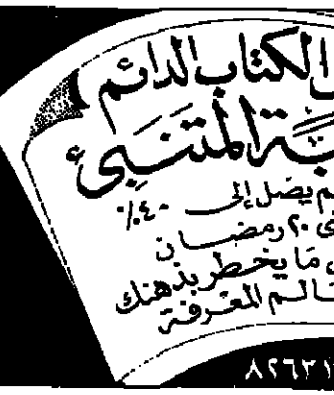 الكتاب الدائم
المتنبي
يصل إلى ٤٠٪
٢٠ رمضان
ما يخطر بذهنك
عالم المعرفة
٨٢٦٣١